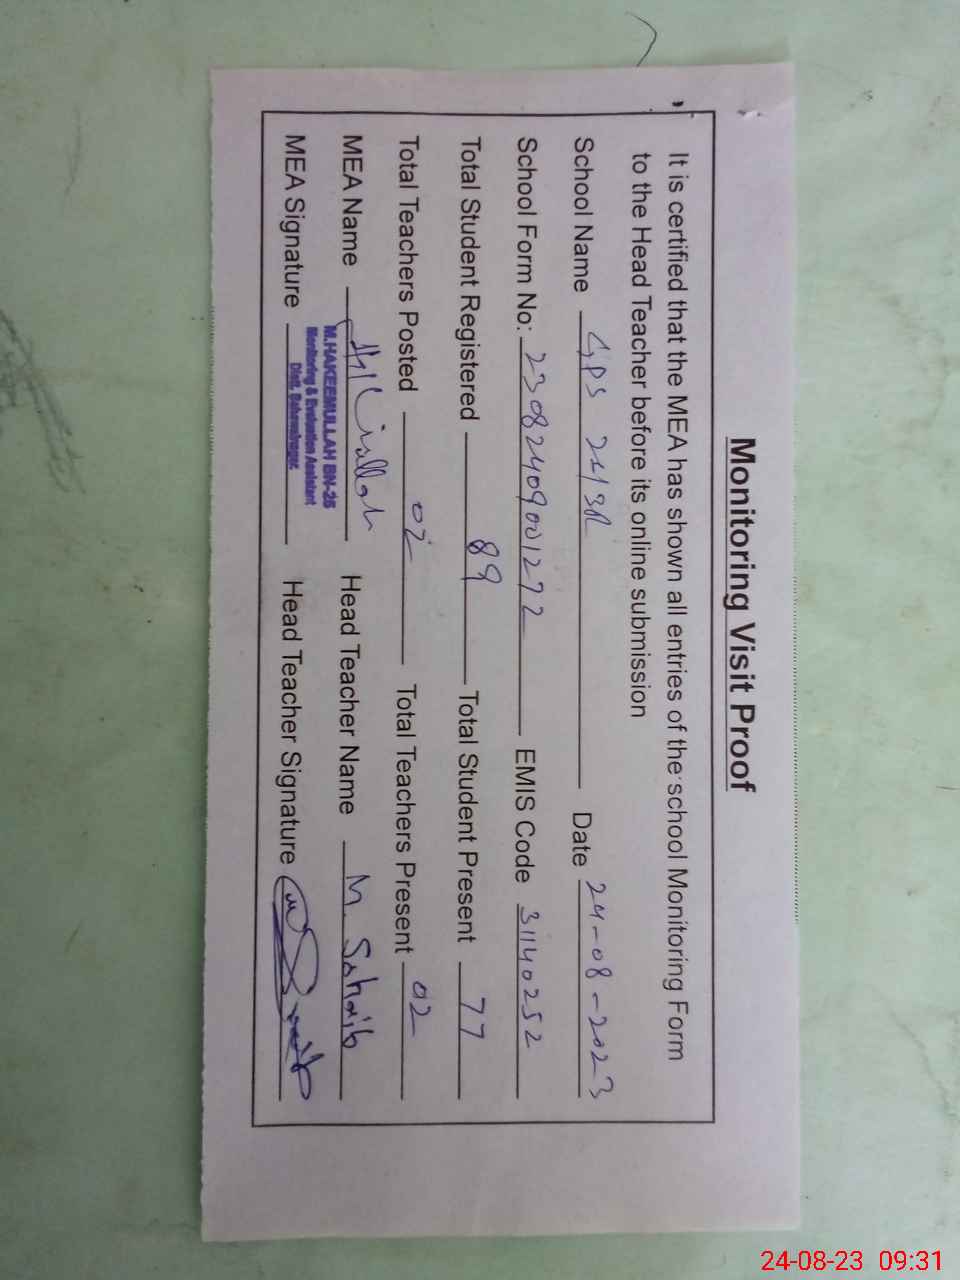 Monitoring Visit Proof
It is certified that the MEA has shown all entries of the school Monitoring Form
to the Head Teacher before its online submission
School Name GPS 21/3R Date 24-08-2023
School Form No: 23082409001272 EMIS Code 31140252
Total Student Registered 89 Total Student Present 77
Total Teachers Posted 02 Total Teachers Present 02
MEA Name Head Teacher Name M. Sohaib
M.HAKEEMULLAH BN-26
Monitoring & Evaluation Assistant
Distt. Bahawalnagar
MEA Signature Head Teacher Signature
24-08-23 09:31